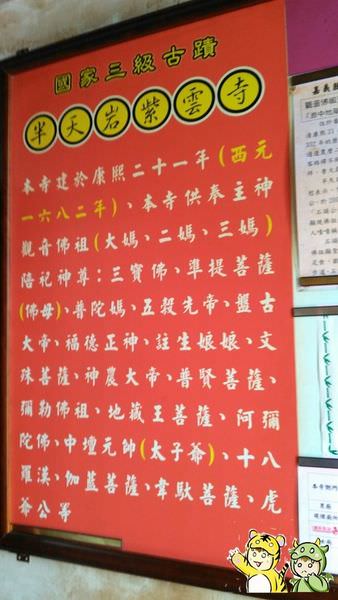 國家三級古蹟
半天岩紫雲寺
本寺建於康熙二十一年(西元
一六八二年)、本寺供奉主神
觀音佛祖(大媽、二媽、三媽)
陪祀神尊：三寶佛、準提菩薩
(佛母)、普陀媽、五穀先帝、盤古
大帝、福德正神、註生娘娘、文
殊菩薩、神農大帝、普賢菩薩、
彌勒佛祖、地藏王菩薩、阿彌
陀佛、中壇元帥(太子爺)、十八
羅漢、伽藍菩薩、韋馱菩薩、虎
爺公等